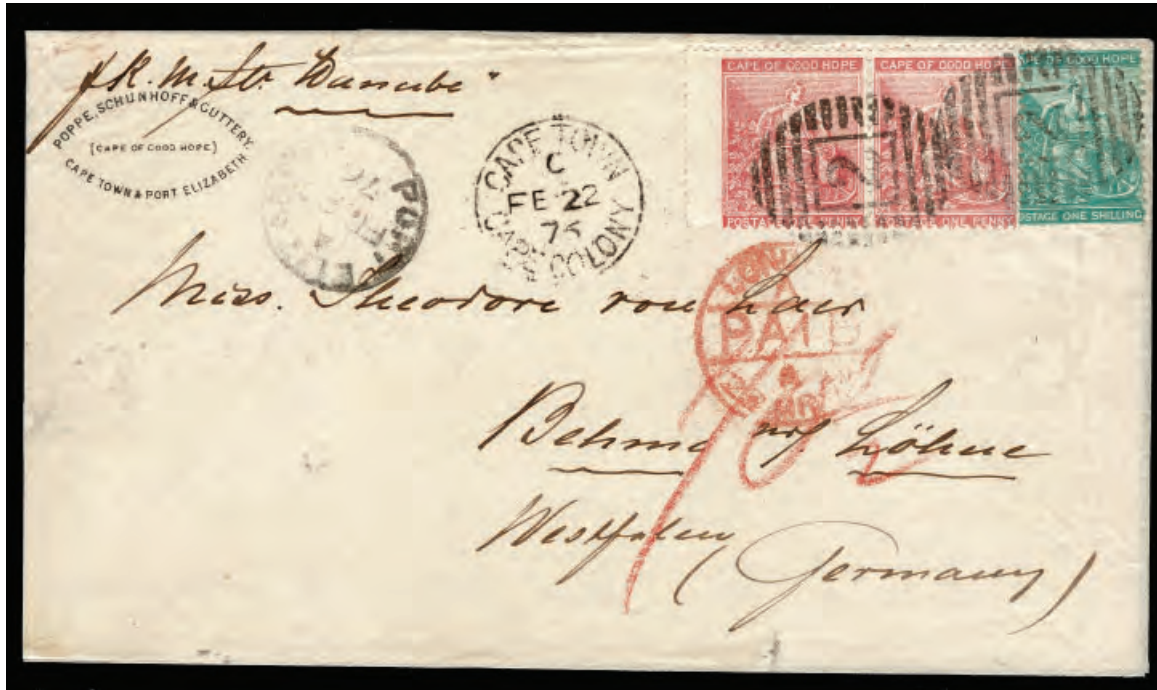 p R. M. Str. Danube
POPPE, SCHUNHOFF & GUTTERY.
[CAPE OF GOOD HOPE]
CAPE TOWN & PORT ELIZABETH
PORT EL
CAPE TOWN
C
FE 22
CAPE COLONY
CAPE OF GOOD HOPE
POSTAGE ONE PENNY
CAPE OF GOOD HOPE
POSTAGE ONE PENNY
CAPE OF GOOD HOPE
POSTAGE ONE SHILLING
PAID
MR
Miss. Theodore von Laer
Behme
Löhne
Westfalen
(Germany)